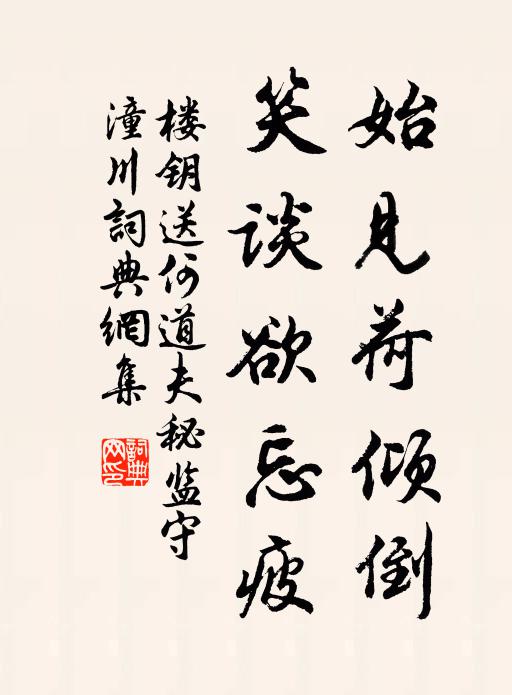 始见荷倾倒
笑谈欲忘疲
楼钥送何道夫秘监守
潼川詞典網集
詞典网印